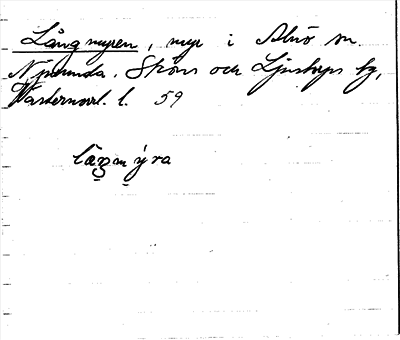 Långmyren, myr i Alnö sn.
Njurunda, Sköns och Ljustorps tg,
Västernorrl. l. 59
låŋmýra